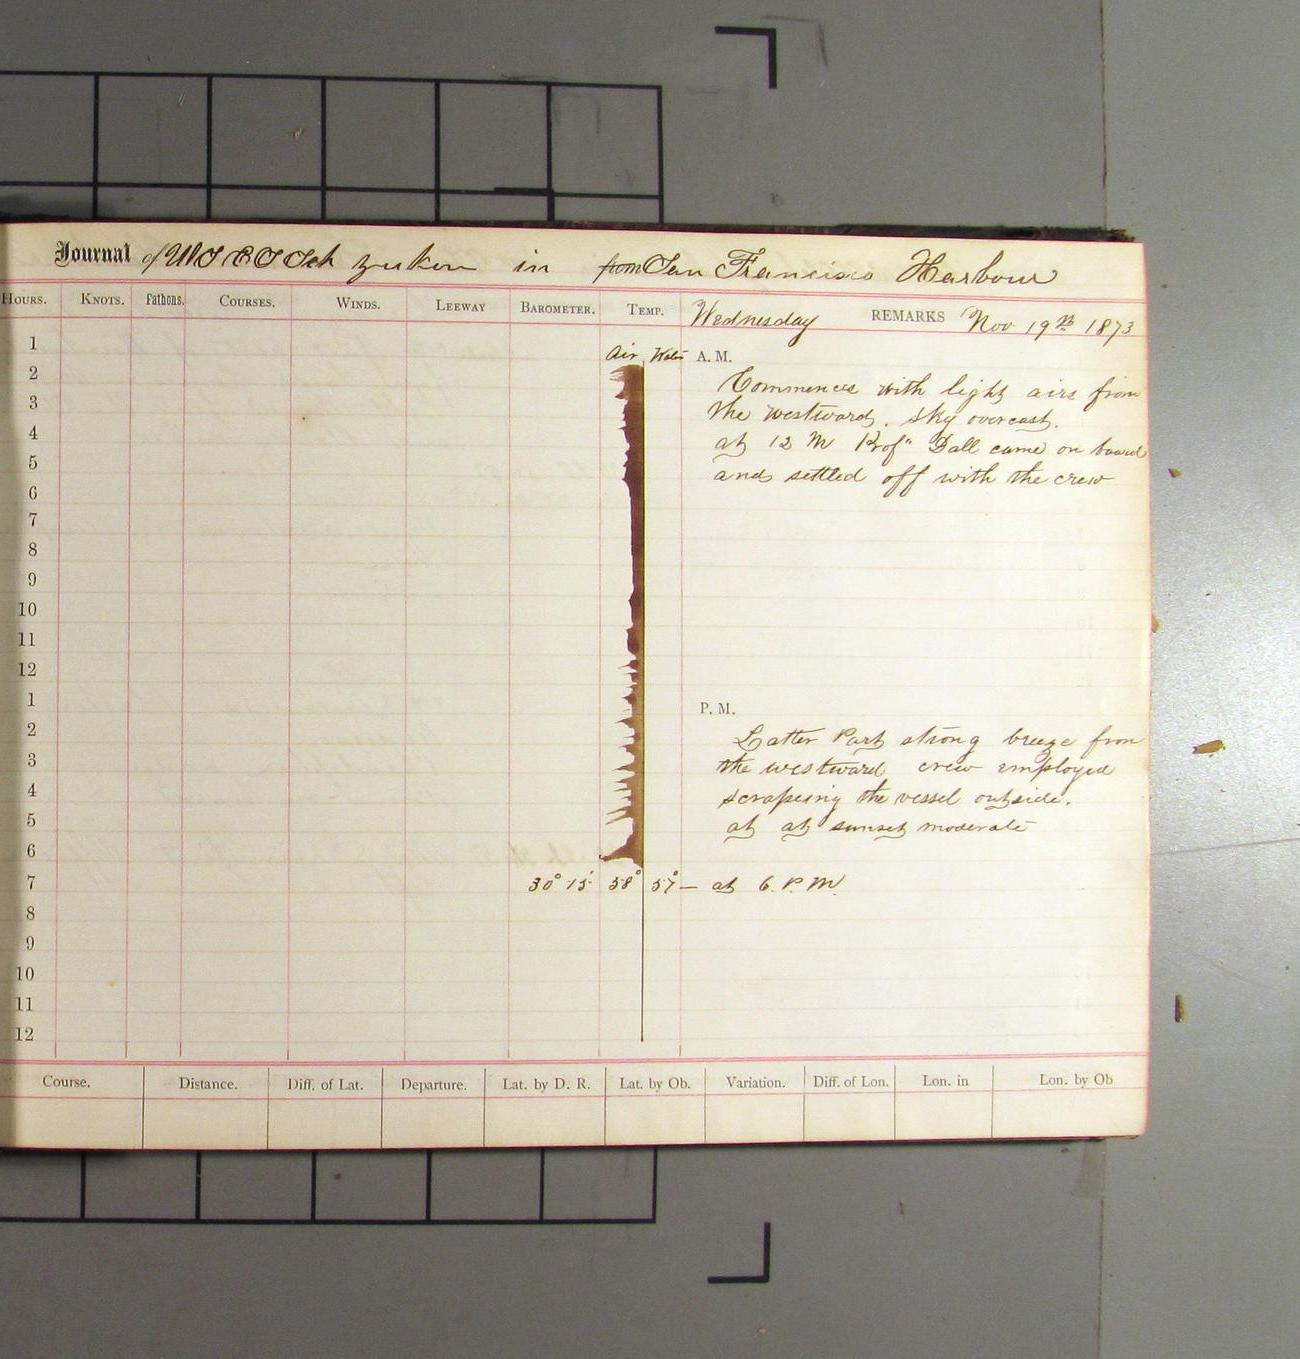 Journal of U S C S Sch yukon in from San Francisco Harbour
HOURS. KNOTS. Fathoms. COURSES. WINDS. LEEWAY BAROMETER. TEMP. Wednesday REMARKS Nov 19th 1873
1
Air Water A. M.
2
Commences with light airs from
3
the westward. sky overcast.
4
at 12 M Prof" Dall came on board
5
and settled off with the crew
6
7
8
9
10
11
12
1
P. M.
2
Latter Part strong breeze from
3
the westward crew employed
4
scrapeing the vessel outside.
5
at at sunset moderate
6
7 30° 15' 58° 57° — at 6. P. M.
8
9
10
11
12
Course. Distance. Diff. of Lat. Departure. Lat. by D. R. Lat. by Ob. Variation. Diff. of Lon. Lon. in Lon. by Ob